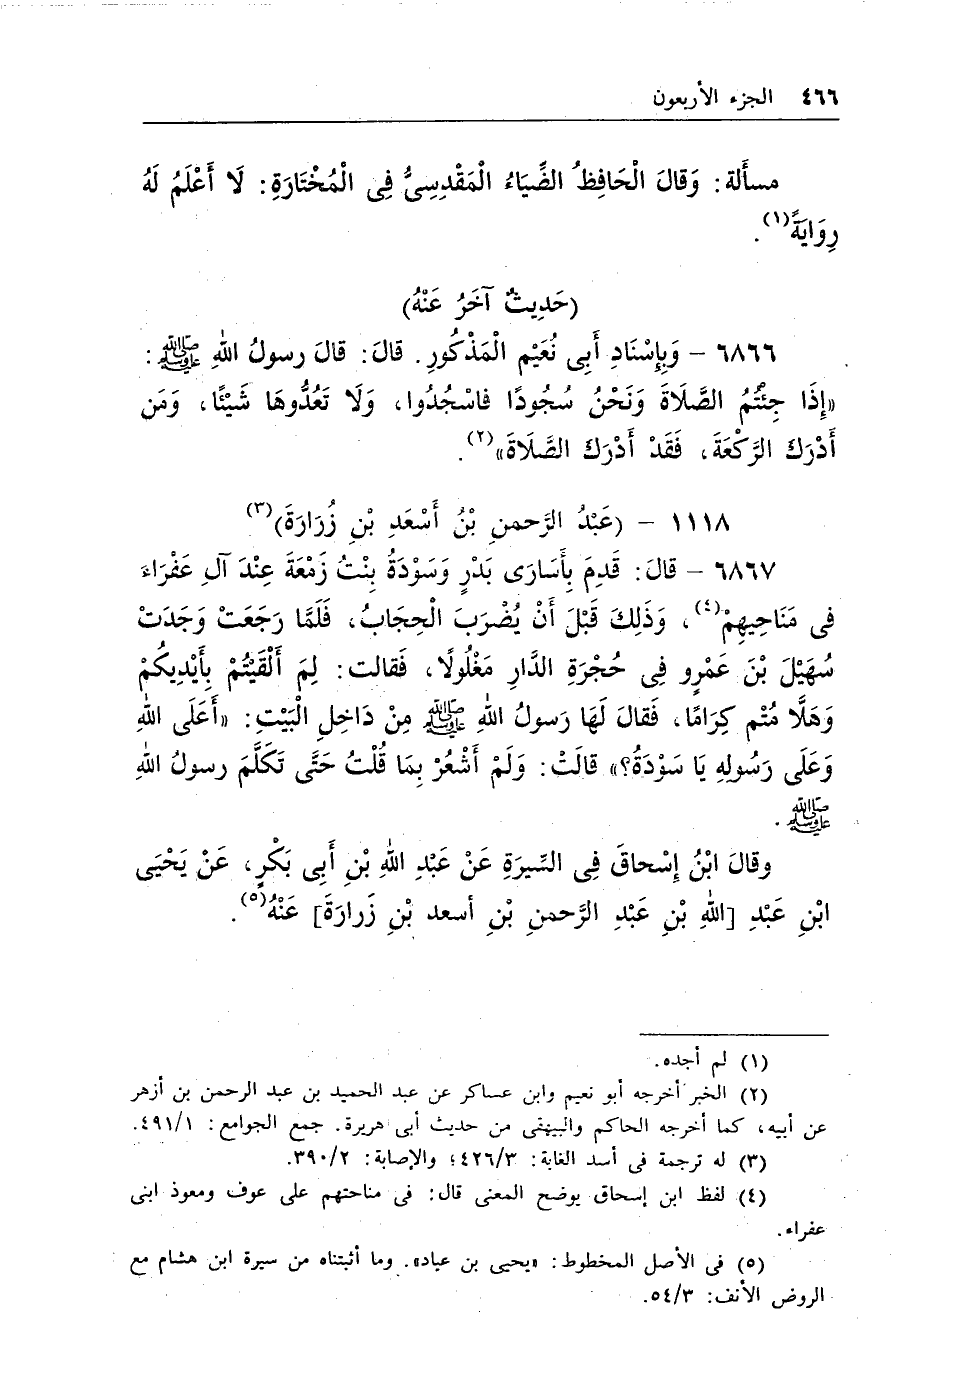 ٤٦٦ الجزء الأربعون
مسألة: وَقالَ الْحَافِظُ الضِّيَاءُ الْمَقْدِسِيُّ فِى الْمُخْتَارَةِ: لَا أَعْلَمُ لَهُ
رِوَايَةً(١).
(حَدِيثٌ آخَرُ عَنْهُ)
٦٨٦٦ – وَبِإِسْنَادِ أَبِى نُعَيْمٍ الْمَذْكُورِ. قالَ: قالَ رسولُ اللهِ ﷺ:
«إِذَا جِئْتُمُ الصَّلَاةَ وَنَحْنُ سُجُودًا فاسْجُدُوا، وَلَا تَعُدُّوهَا شَيْئًا، وَمَن
أَدْرَكَ الرَّكْعَةَ، فَقَدْ أَدْرَكَ الصَّلَاةَ»(٢).
١١١٨ – (عَبْدُ الرَّحمنِ بْنُ أَسْعَدِ بْنِ زُرَارَةَ)(٣)
٦٨٦٧ – قالَ: قَدِمَ بِأَسَارَى بَدْرٍ وَسَوْدَةُ بِنْتُ زَمْعَةَ عِنْدَ آلِ عَفْرَاءَ
فى مَنَاحِيهِمْ(٤)، وَذَلِكَ قَبْلَ أَنْ يُضْرَبَ الْحِجَابُ، فَلَمَّا رَجَعَتْ وَجَدَتْ
سُهَيْلَ بْنَ عَمْرٍو فِى حُجْرَةِ الدَّارِ مَغْلُولًا، فَقالت: لِمَ أَلْقَيْتُمْ بِأَيْدِيكُمْ
وَهَلَّا مُتْم كِرَامًا، فَقالَ لَهَا رَسولُ اللهِ ﷺ مِنْ دَاخِلِ الْبَيْتِ: «أَعَلَى اللهِ
وَعَلَى رَسُولِهِ يَا سَوْدَةُ؟» قالَتْ: وَلَمْ أَشْعُرْ بِمَا قُلْتُ حَتَّى تَكَلَّمَ رسولُ اللهِ
ﷺ.
وقالَ ابْنُ إِسْحاقَ فِى السِّيرَةِ عَنْ عَبْدِ اللهِ بْنِ أَبِى بَكْرٍ، عَنْ يَحْيَى
ابْنِ عَبْدِ [اللهِ بْنِ عَبْدِ الرَّحمنِ بْنِ أسعد بْنِ زَرارَةَ] عَنْهُ(٥).
(١) لم أجده.
(٢) الخبر أخرجه أبو نعيم وابن عساكر عن عبد الحميد بن عبد الرحمن بن أزهر
عن أبيه، كما أخرجه الحاكم والبيهقى من حديث أبى هريرة. جمع الجوامع: ٤٩١/١.
(٣) له ترجمة فى أسد الغابة: ٤٢٦/٣؛ والإصابة: ٣٩٠/٢.
(٤) لفظ ابن إسحاق يوضح المعنى قال: فى مناحتهم على عوف ومعوذ ابنى
عفراء.
(٥) فى الأصل المخطوط: «يحيى بن عباد». وما أثبتناه من سيرة ابن هشام مع
الروض الأنف: ٥٤/٣.